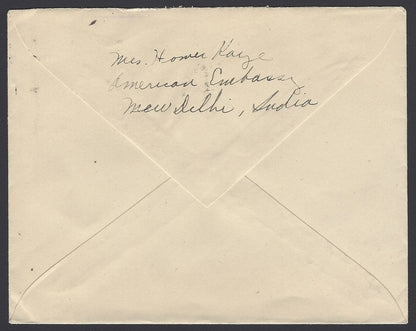 Mrs. Homer Kaye
American Embassy
New Delhi, India